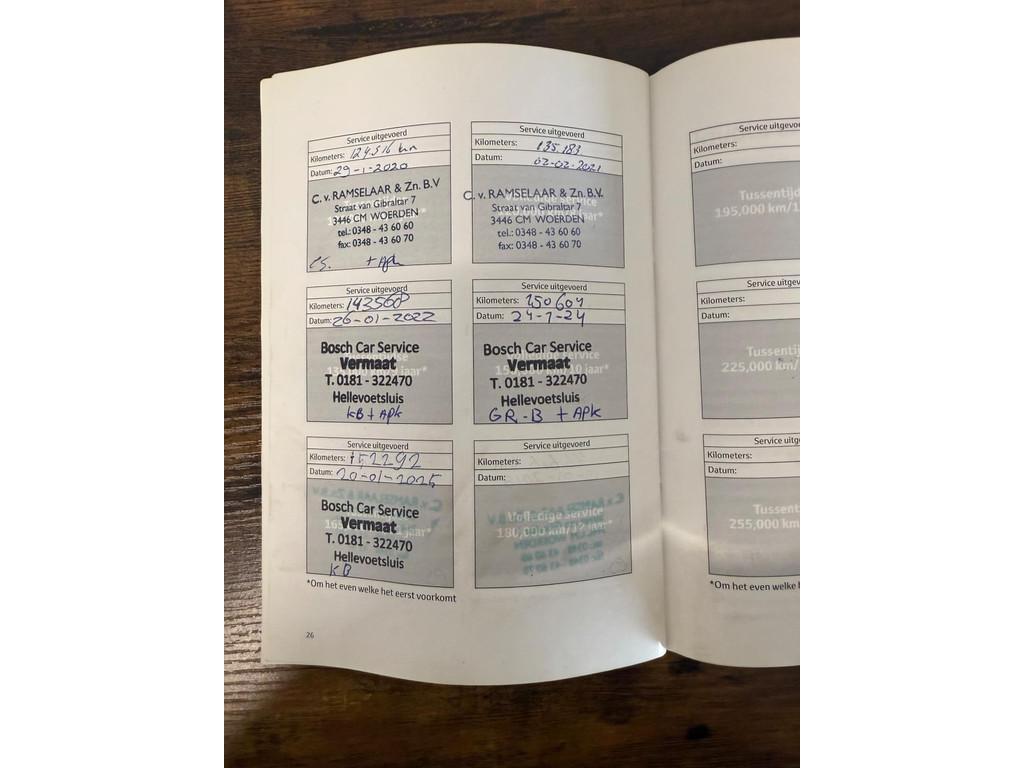 Service uitgevoerd
Kilometers: 124516 km
Datum: 29-1-2020
C. v. RAMSELAAR & Zn. B.V
Straat van Gibraltar 7
3446 CM WOERDEN
tel.: 0348 - 43 60 60
fax: 0348 - 43 60 70
+ Apk
Service uitgevoerd
Kilometers: 135.183
Datum: 02-02-2021
C. v. RAMSELAAR & Zn. B.V.
Straat van Gibraltar 7
3446 CM WOERDEN
tel.: 0348 - 43 60 60
fax: 0348 - 43 60 70
Service uitgevoerd
Kilometers: 143568
Datum: 26-01-2022
Bosch Car Service
Vermaat
T. 0181 - 322470
Hellevoetsluis
KB + APK
Service uitgevoerd
Kilometers: 150604
Datum: 24-1-24
Bosch Car Service
Vermaat
T. 0181 - 322470
Hellevoetsluis
GR-B + APK
Service uitgevoerd
Kilometers: 152292
Datum: 20-01-2025
Bosch Car Service
Vermaat
T. 0181 - 322470
Hellevoetsluis
KB
Service uitgevoerd
Kilometers:
Datum:
Volledige service
180,000 km/12 jaar*
*Om het even welke het eerst voorkomt
26
Service uitgevoe
Kilometers:
Datum:
Tussentijd
195,000 km/1
Service uitgev
Kilometers:
Datum:
Tussentij
225,000 km/
Service uitg
Kilometers:
Datum:
Tussent
255,000 km
*Om het even welke h